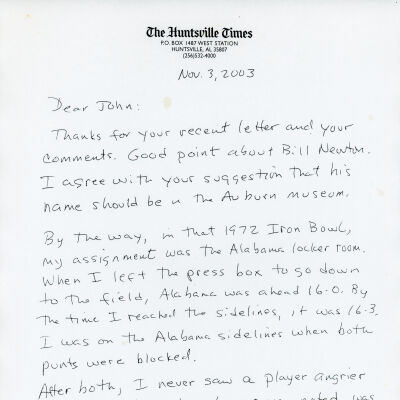 The Huntsville Times
P.O. BOX 1487 WEST STATION
HUNTSVILLE, AL 35807
(256)532-4000
Nov. 3, 2003
Dear John:
Thanks for your recent letter and your
comments. Good point about Bill Newton.
I agree with your suggestion that his
name should be in the Auburn museum.
By the way, in that 1972 Iron Bowl,
my assignment was the Alabama locker room.
When I left the press box to go down
to the field, Alabama was ahead 16-0. By
the time I reached the sidelines, it was 16-3.
I was on the Alabama sidelines when both
punts were blocked.
After both, I never saw a player angrier
was